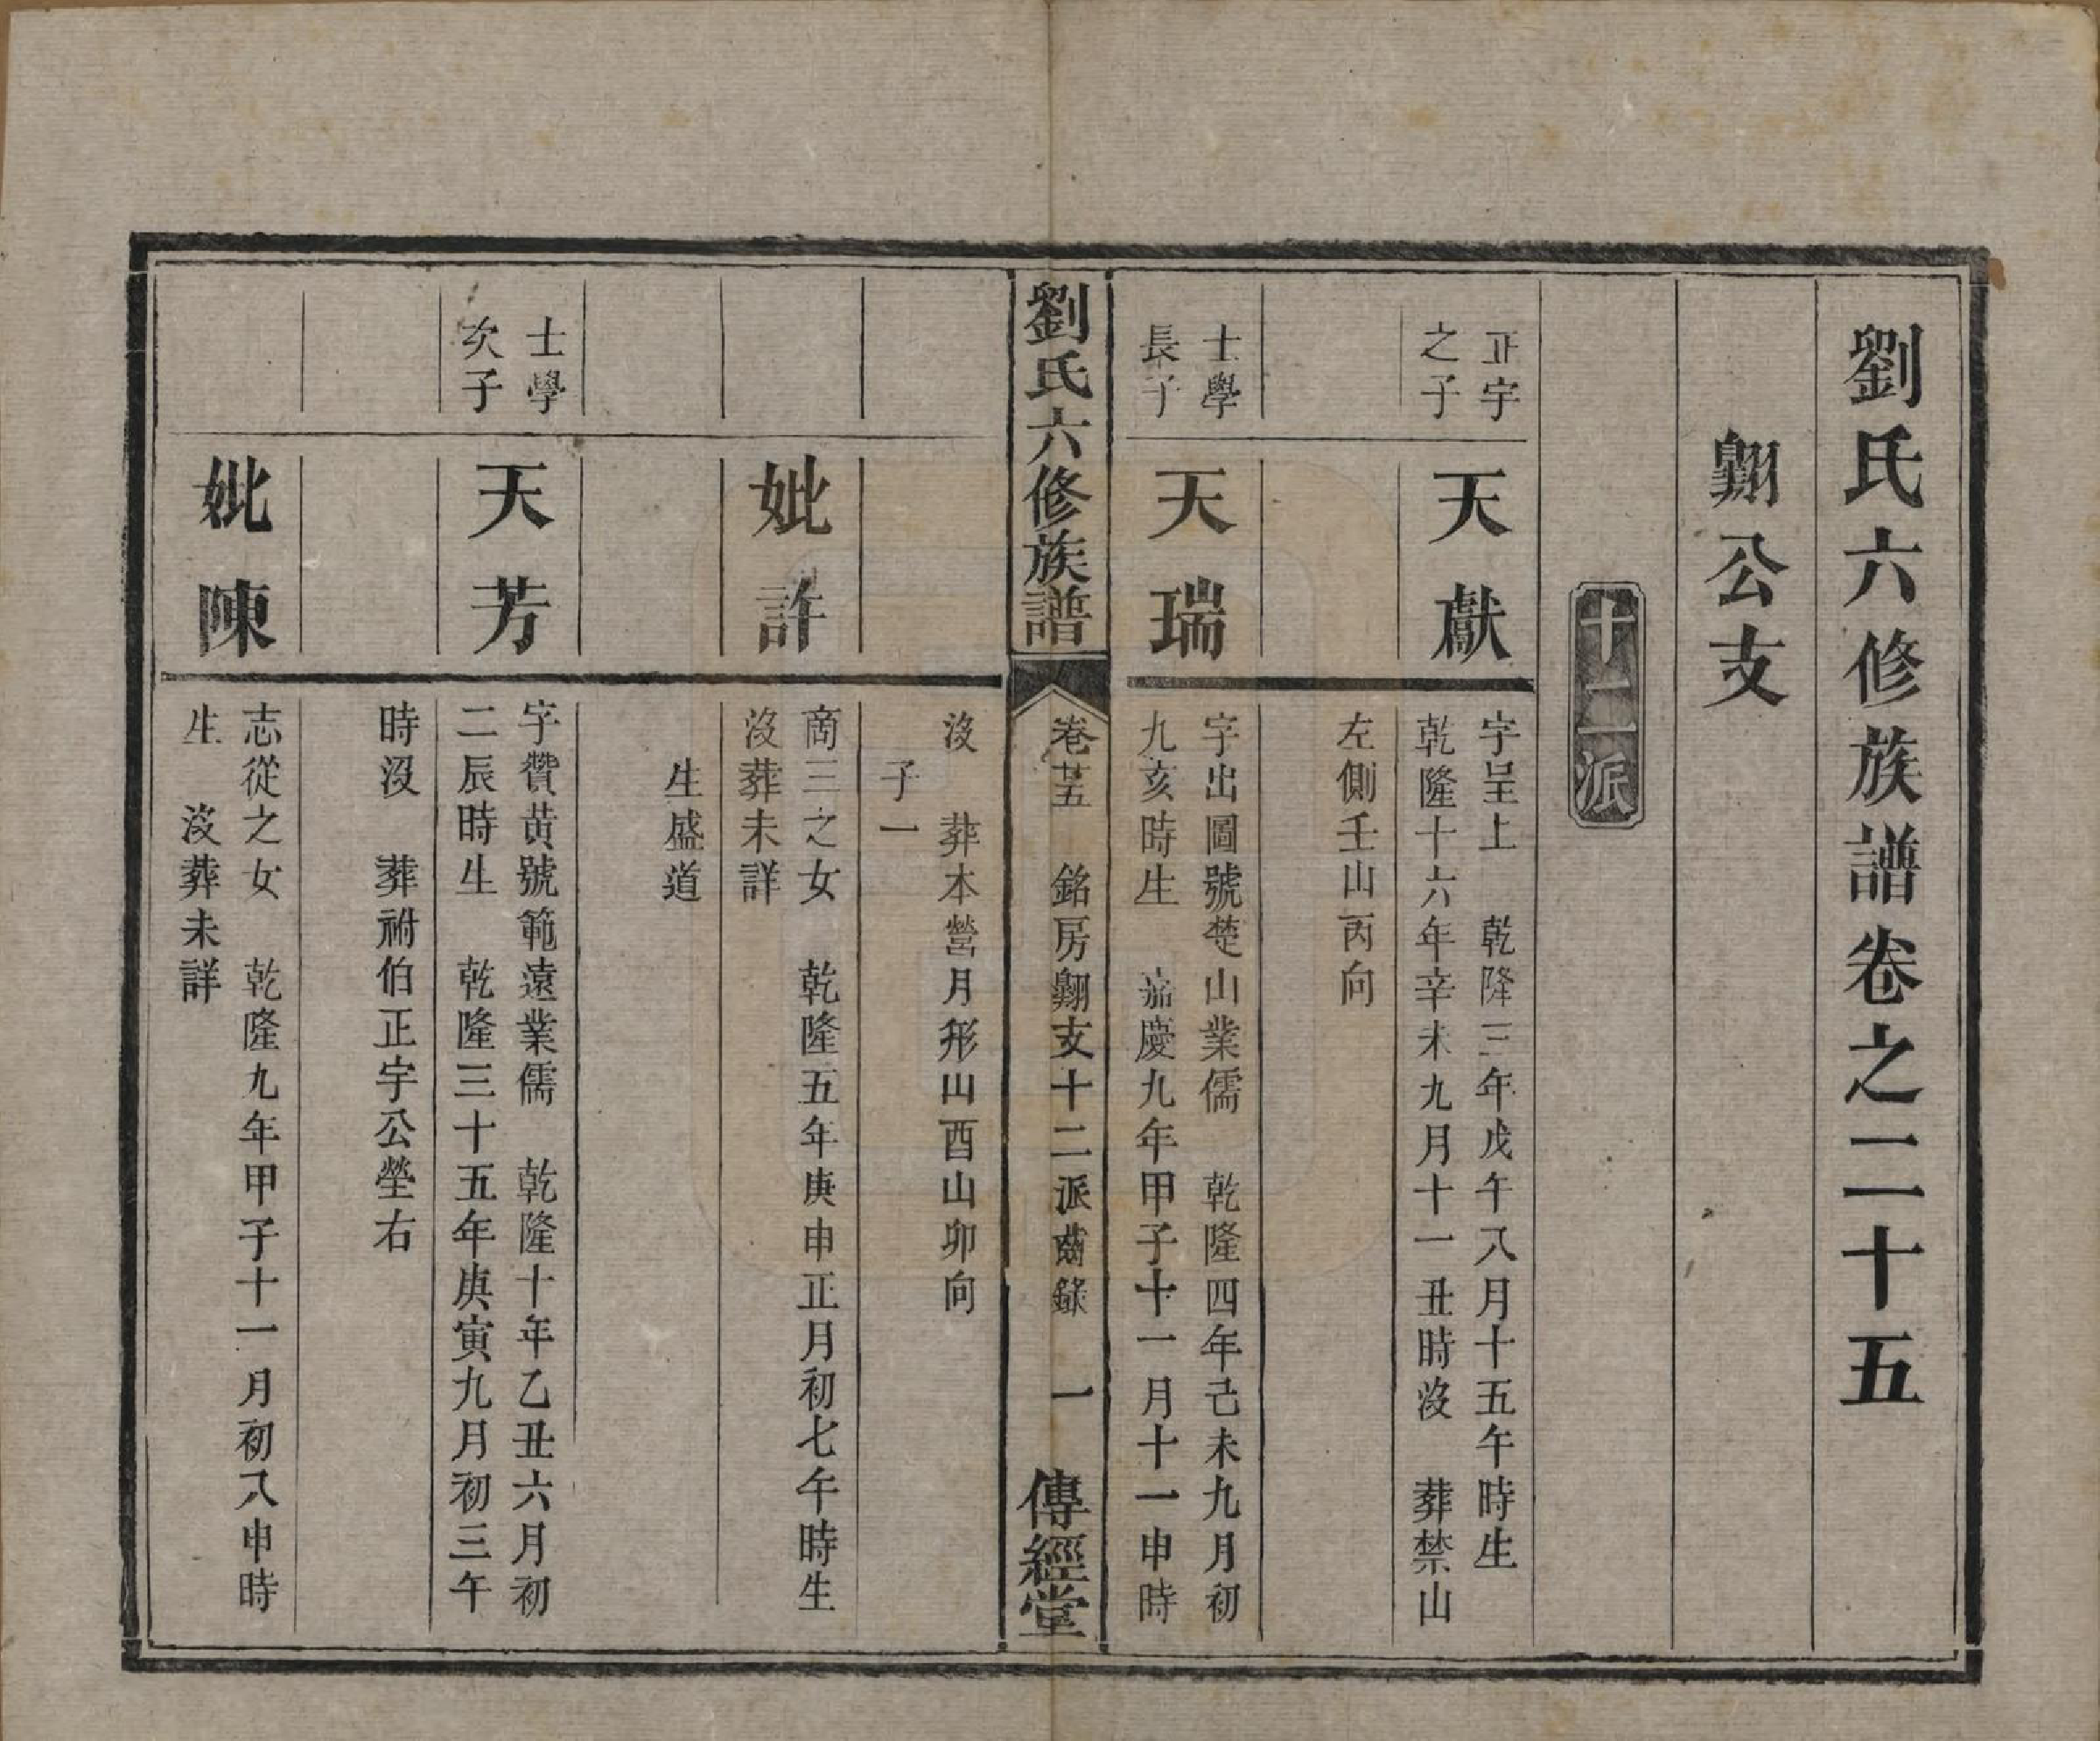 劉氏六修族譜卷之二十五
翺公支
十二派
正宇
之子
天獻
字呈上　乾隆三年戊午八月十五午時生
乾隆十六年辛未九月十一丑時沒　葬禁山
左側壬山丙向
士學
長子
天瑞
字出圖號楚山業儒　乾隆四年己未九月初
九亥時生　嘉慶九年甲子十一月十一申時
劉氏六修族譜
卷廿五　銘房翺支十二派齒錄　一
傳經堂
沒　葬本營月形山酉山卯向
子一
妣許
商三之女　乾隆五年庚申正月初七午時生
沒葬未詳
生盛道
士學
次子
天芳
字贊黃號範遠業儒　乾隆十年乙丑六月初
二辰時生　乾隆三十五年庚寅九月初三午
時沒　葬祔伯正宇公塋右
妣陳
志從之女　乾隆九年甲子十一月初八申時
生　沒葬未詳